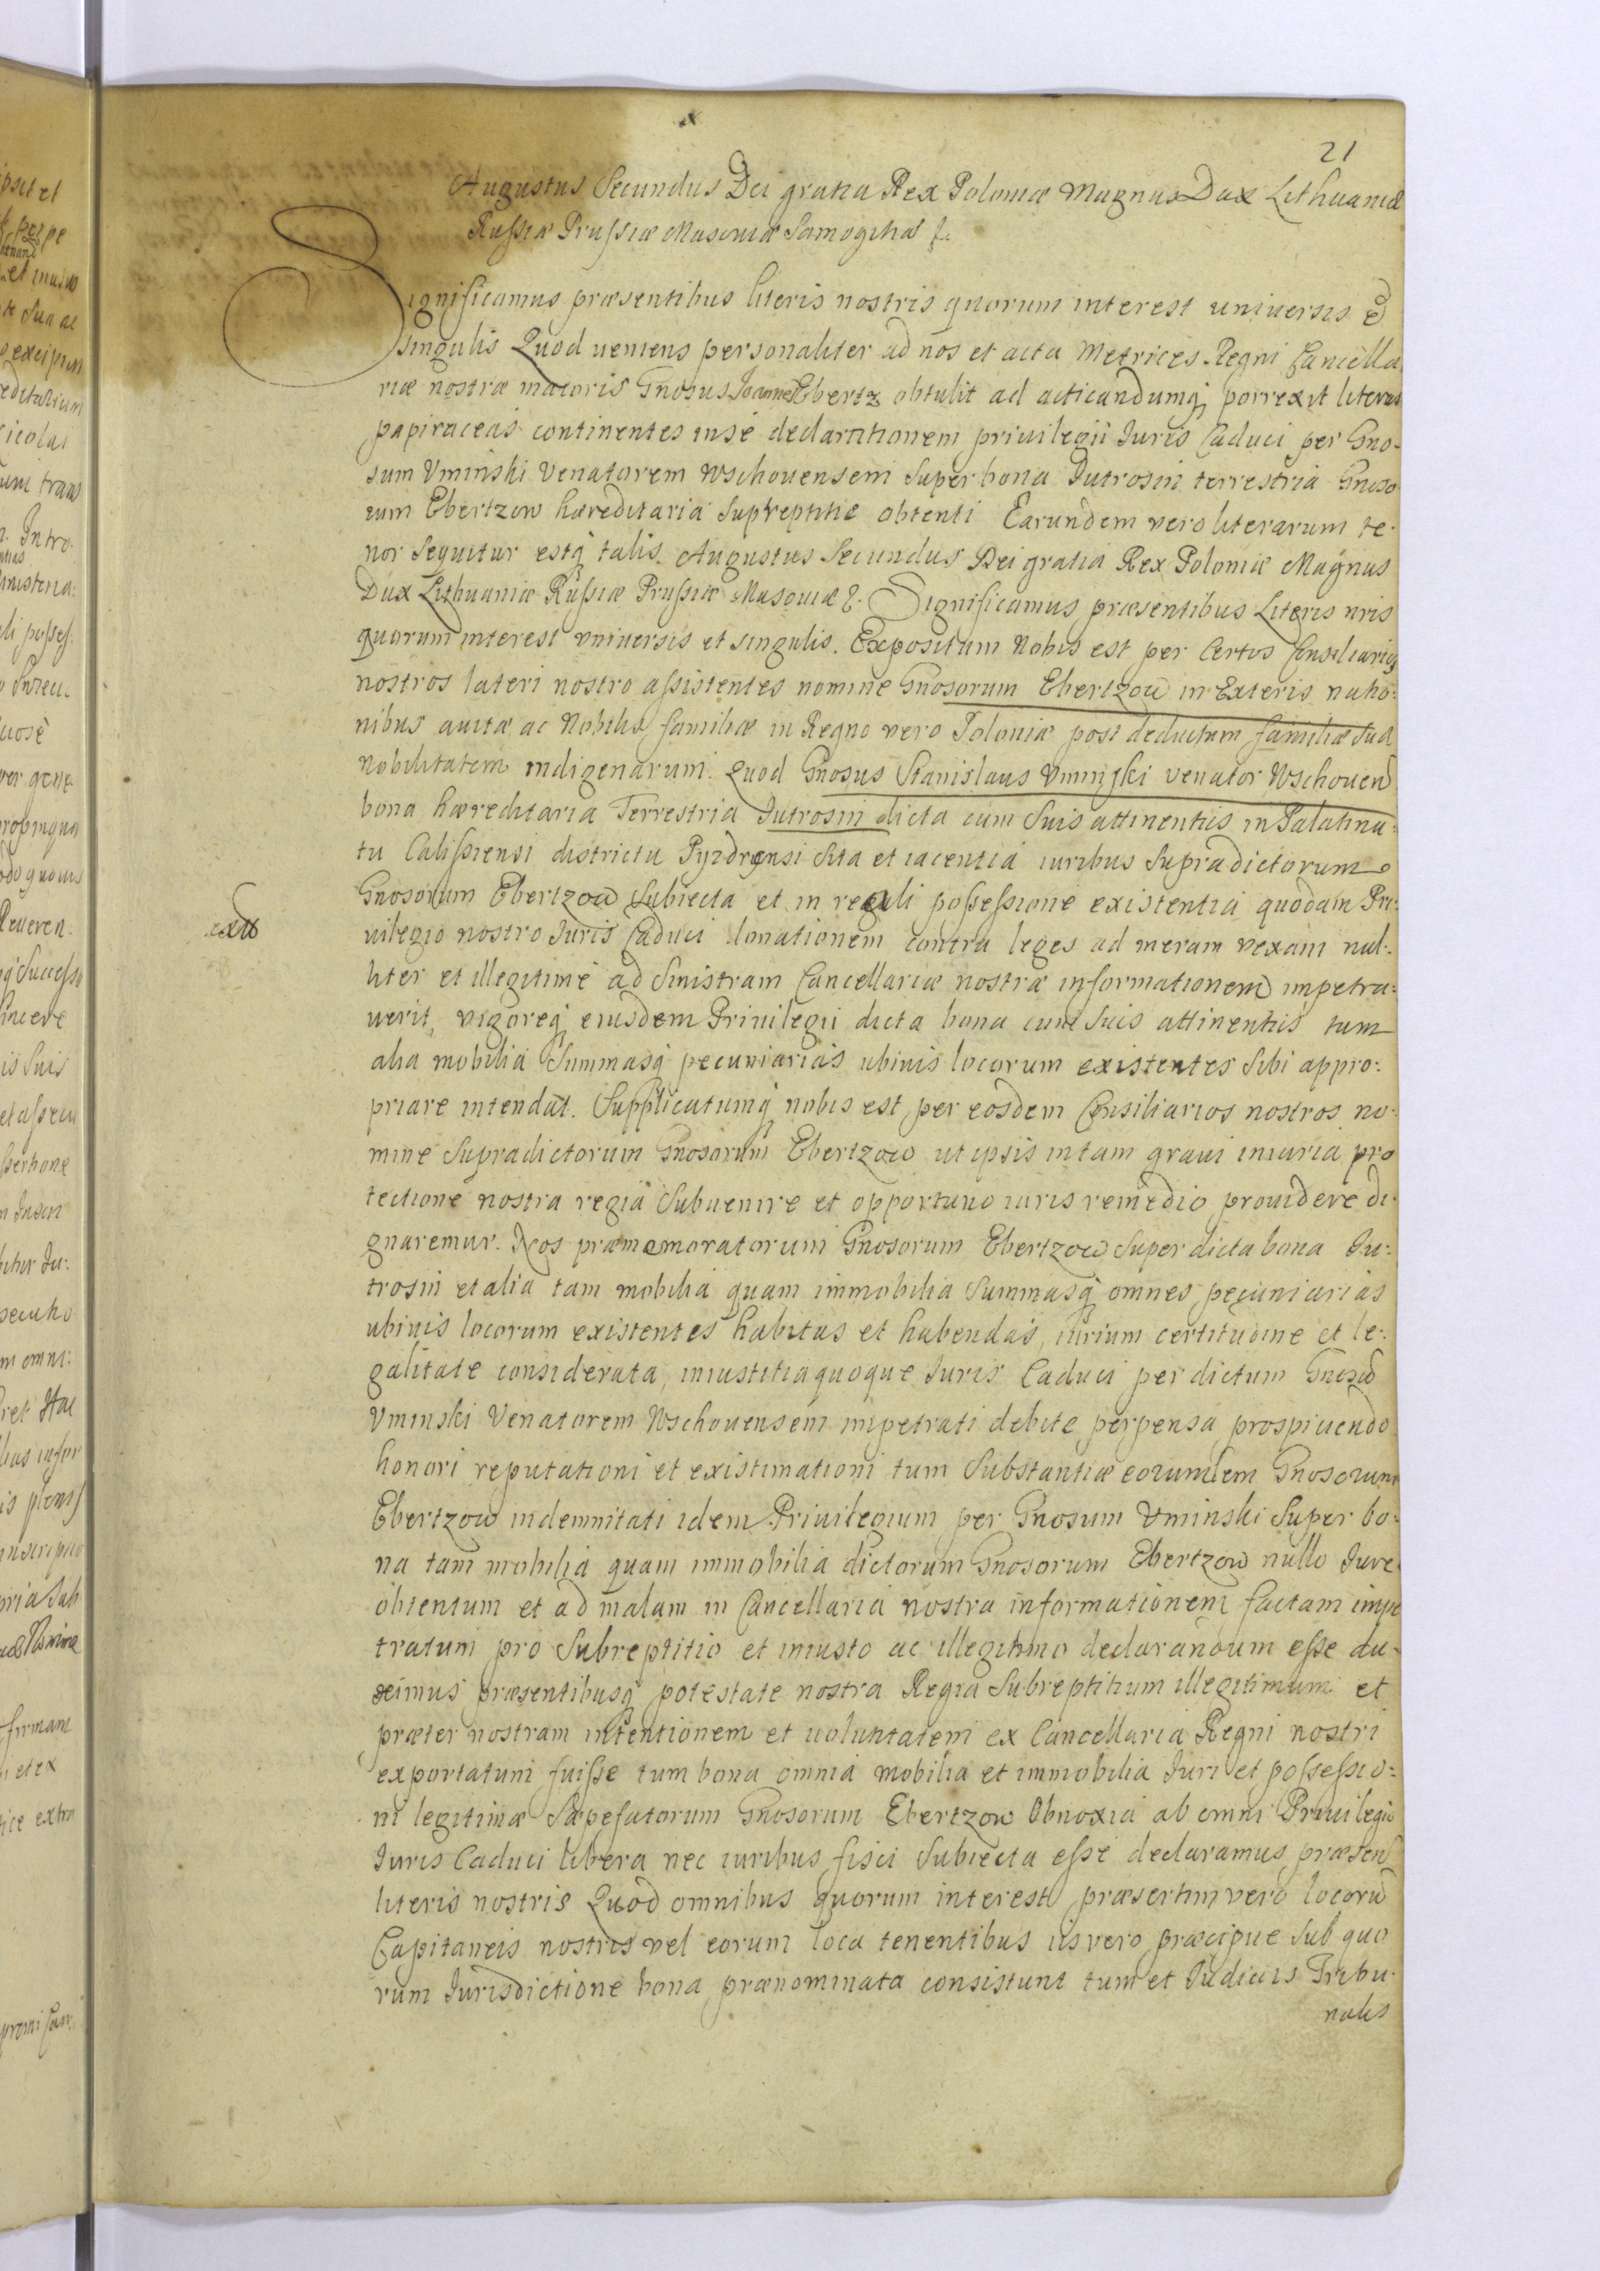 21
Augustus Secundus Dei gratia Rex Poloniæ Magnus Dux Lithuaniæ
Russiæ Prussiæ Masoviæ Samogitiæ
Significamus præsentibus literis nostris quorum interest universis et
singulis Quod veniens personaliter ad nos et acta Metrices Regni Cancella
riæ nostræ maioris Gnosus Joannes Ebertz obtulit ad acticandumq porrexit literas
papiraceas continentes in se declarationem privilegii Iuris Caduci per Gno-
sum Uminski Venatorem Wschouensem super bona Iutrosin terrestria Gnoso
rum Ebertzow hæreditaria supreptitie obtenti Earundem vero literarum te-
nor sequitur estq talis. Augustus Secundus Dei gratia Rex Poloniæ Magnus
Dux Lithuaniæ Russiæ Prussiæ Masoviæ &. Significamus præsentibus Literis nris
quorum interest universis et singulis. Expositum Nobis est per Certos Consiliarios
nostros lateri nostro assistentes nomine Gnosorum Ebertzow in Exteris natio-
nibus avitæ ac Nobilis familiæ in Regno vero Poloniæ post deductam familiæ sua
nobilitatem indigenarum. Quod Gnosus Stanislaus Uminski venator Wschouen
bona hæreditaria Terrestria Iutrosin dicta cum suis attinentiis in Palatina-
tu Calissiensi districtu Pyzdrensi sita et iacentia iuribus supradictorum
Gnosorum Ebertzow subiecta et in regali possessione existentia quodam Pri-
vilegio nostro Iuris Caduci donationem contra leges ad meram vexam nul-
liter et illegitime ad sinistram Cancellariæ nostræ informationem impetra-
uerit, vigoreq eiusdem Privilegii dicta bona cum suis attinentiis tum
alia mobilia summasq pecuniarias ubiuis locorum existentes sibi appro-
priare intendat. Supplicatumq nobis est per eosdem Consiliarios nostros no-
mine supradictorum Gnosorum Ebertzow ut ipsis in tam graui iniuria pro
tectione nostra regia subuenire et opportuno iuris remedio prouidere di-
gnaremur. Nos præmemoratorum Gnosorum Ebertzow super dicta bona Iu-
trosin et alia tam mobilia quam immobilia summasq omnes pecuniarias
ubiuis locorum existentes habitas et habendas, iurium certitudine et le-
galitate considerata, iniustitia quoque Iuris Caduci per dictum Gnosu
Uminski Venatorem Wschouensem impetrati debite perpensa prospiciendo
honori reputationi et existimationi tum substantiæ eorumdem Gnosorum
Ebertzow indemnitati idem Priuilegium per Gnosum Uminski super bo-
na tam mobilia quam immobilia dictorum Gnosorum Ebertzow nullo Iure
obtentum et ad malam in Cancellaria nostra informationem factam impe
tratum pro subreptitio et iniusto ac illegitimo declarandum esse du-
ximus præsentibusq potestate nostra Regia subreptitium illegitimum et
præter nostram intentionem et uoluntatem ex Cancellaria Regni nostri
exportatum fuisse tum bona omnia mobilia et immobilia Iuri et possessio-
ni legitimæ sæpefatorum Gnosorum Ebertzow obnoxia ab omni Priuilegio
Iuris Caduci libera nec iuribus fisci subiecta esse declaramus præsen
literis nostris Quod omnibus quorum interest præsertim vero locoru
Capitaneis nostris vel eorum loca tenentibus iis vero præcipue sub quo
rum Iurisdictione bona prænominata consistunt tum et Iudiciis Tribu-
nalis